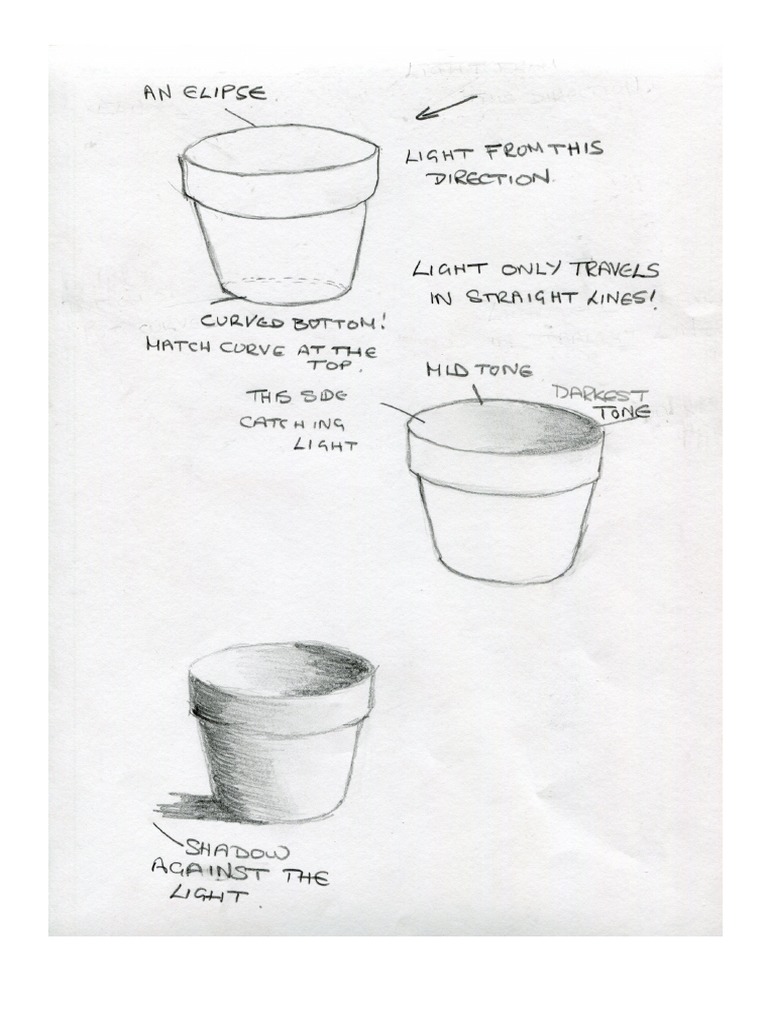 AN ELIPSE.
LIGHT FROM THIS
DIRECTION.
LIGHT ONLY TRAVELS
IN STRAIGHT LINES!
CURVED BOTTOM!
MATCH CURVE AT THE
TOP.
MID TONE
DARKEST
TONE
THIS SIDE
CATCHING
LIGHT
SHADOW
AGAINST THE
LIGHT.